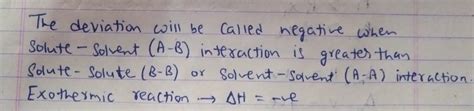 The deviation will be called negative when
solute - solvent (A-B) interaction is greater than
Solute - Solute (B-B) or Solvent-Solvent (A-A) interaction.
Exothermic reaction → ΔH = -ve